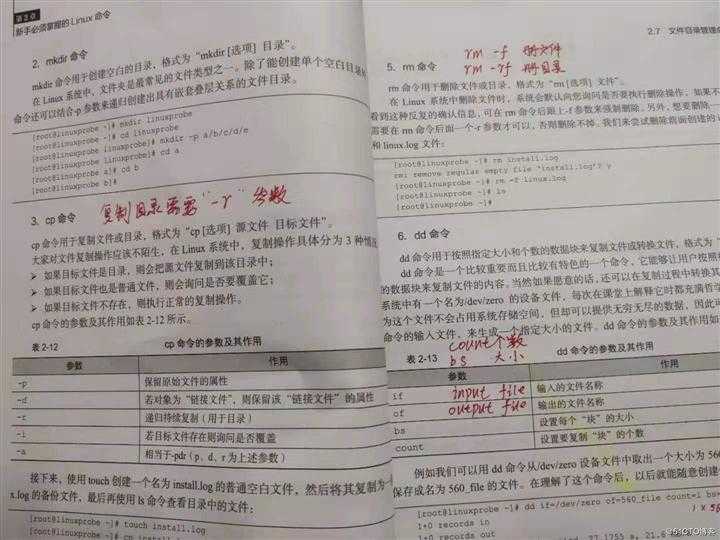 第2章
新手必须掌握的 Linux 命令
2. mkdir 命令
mkdir 命令用于创建空白的目录，格式为“mkdir [选项] 目录”。
在 Linux 系统中，文件夹是最常见的文件类型之一。除了能创建单个空白目录外
命令还可以结合-p 参数来递归创建出具有嵌套叠层关系的文件目录。
[root@linuxprobe ~]# mkdir linuxprobe
[root@linuxprobe ~]# cd linuxprobe
[root@linuxprobe linuxprobe]# mkdir -p a/b/c/d/e
[root@linuxprobe linuxprobe]# cd a
[root@linuxprobe a]# cd b
[root@linuxprobe b]#
3. cp 命令 复制目录需要“-r”参数
cp 命令用于复制文件或目录，格式为“cp [选项] 源文件 目标文件”。
大家对文件复制操作应该不陌生，在 Linux 系统中，复制操作具体分为 3 种情况
➢ 如果目标文件是目录，则会把源文件复制到该目录中；
➢ 如果目标文件也是普通文件，则会询问是否要覆盖它；
➢ 如果目标文件不存在，则执行正常的复制操作。
cp 命令的参数及其作用如表 2-12 所示。
表 2-12 cp 命令的参数及其作用
参数 作用
-p 保留原始文件的属性
-d 若对象为“链接文件”，则保留该“链接文件”的属性
-r 递归持续复制（用于目录）
-i 若目标文件存在则询问是否覆盖
-a 相当于-pdr（p、d、r 为上述参数）
接下来，使用 touch 创建一个名为 install.log 的普通空白文件，然后将其复制为一
x.log 的备份文件，最后再使用 ls 命令查看目录中的文件：
[root@linuxprobe ~]# touch install.log
[root@linuxprobe ~]# cp install.log
2.7 文件目录管理命
rm -f 删文件
5. rm 命令 rm -rf 删目录
rm 命令用于删除文件或目录，格式为“rm [选项] 文件”。
在 Linux 系统中删除文件时，系统会默认向您询问是否要执行删除操作，如果不
看到这种反复的确认信息，可在 rm 命令后跟上-f 参数来强制删除。另外，想要删除一
需要在 rm 命令后面一个-r 参数才可以，否则删除不掉。我们来尝试删除前面创建的
和 linux.log 文件：
[root@linuxprobe ~]# rm install.log
rm: remove regular empty file ‘install.log’? y
[root@linuxprobe ~]# rm -f linux.log
[root@linuxprobe ~]# ls
[root@linuxprobe ~]#
6. dd 命令
dd 命令用于按照指定大小和个数的数据块来复制文件或转换文件，格式为
dd 命令是一个比较重要而且比较有特色的一个命令，它能够让用户按照
的数据块来复制文件的内容。当然如果愿意的话，还可以在复制过程中转换其
系统中有一个名为/dev/zero 的设备文件，每次在课堂上解释它时都充满哲学
为这个文件不会占用系统存储空间，但却可以提供无穷无尽的数据，因此
命令的输入文件，来生成一个指定大小的文件。dd 命令的参数及其作用如
count个数
表 2-13 bs 大小 dd 命令的参数及其作用
参数 作用
if input file 输入的文件名称
of output file 输出的文件名称
bs 设置每个“块”的大小
count 设置要复制“块”的个数
例如我们可以用 dd 命令从/dev/zero 设备文件中取出一个大小为 560
保存成名为 560_file 的文件。在理解了这个命令后，以后就能随意创建
[root@linuxprobe ~]# dd if=/dev/zero of=560_file count=1 bs=
1+0 records in
1+0 records out
@51CTO博客